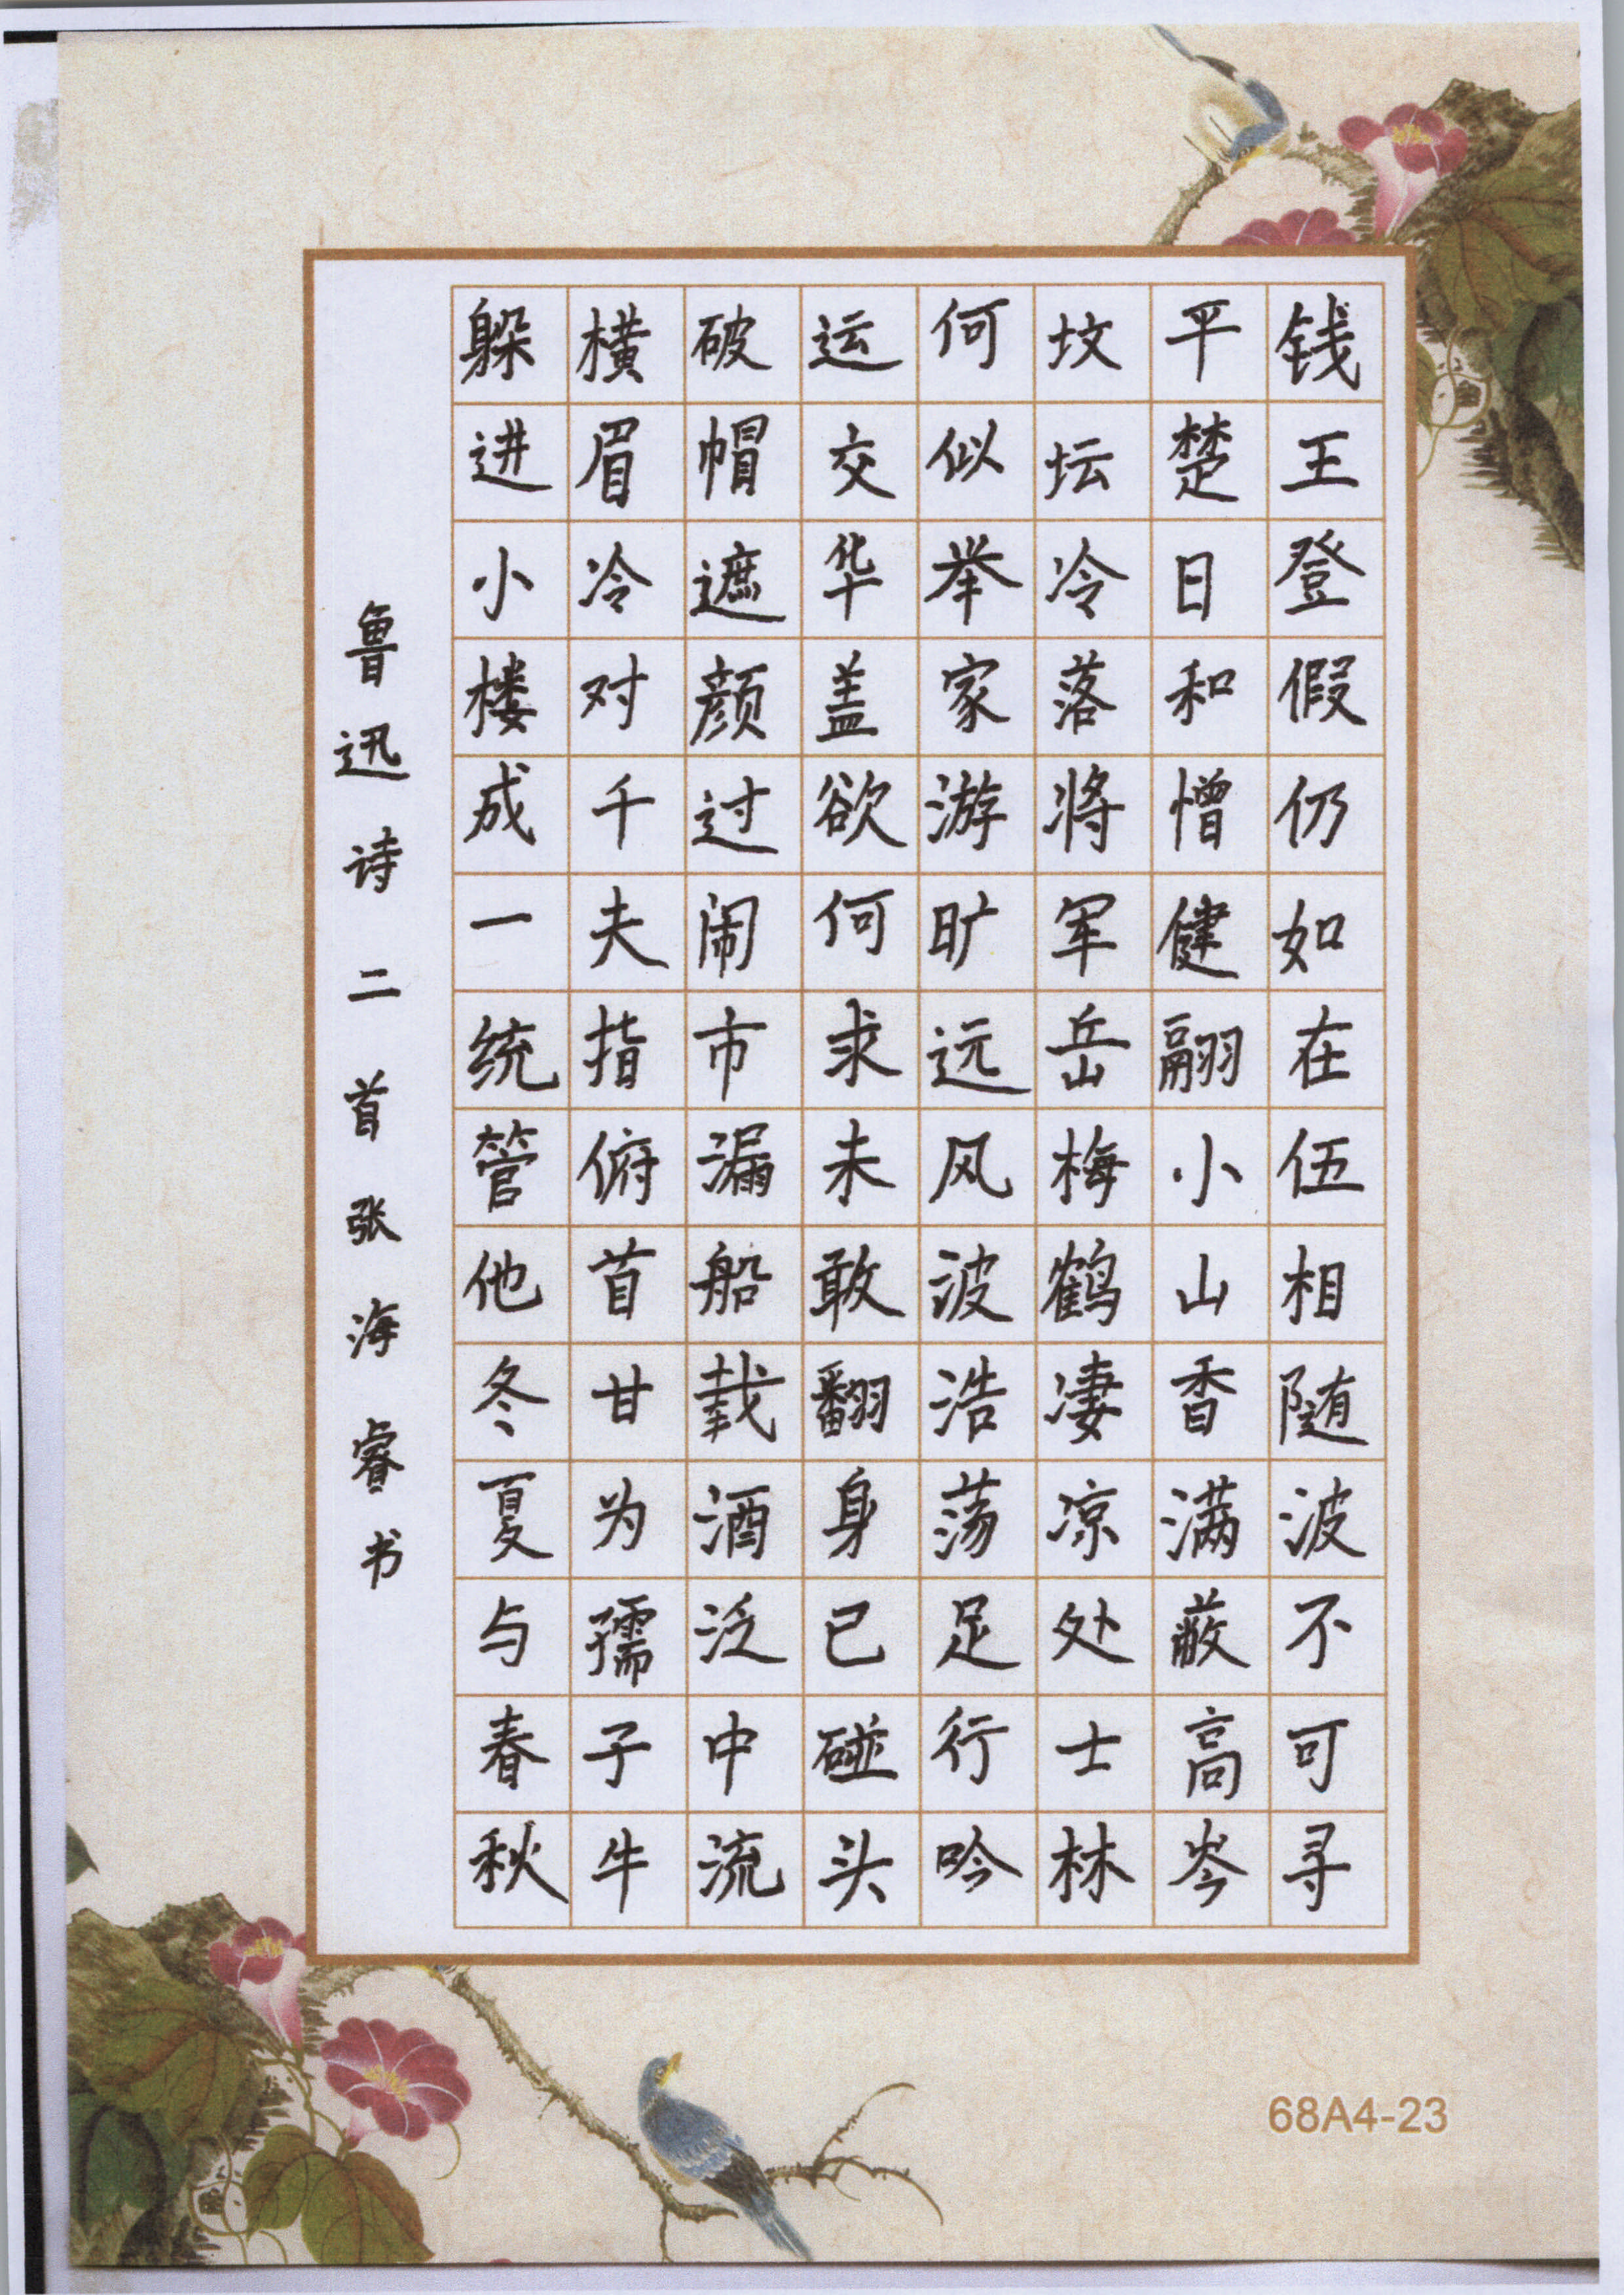 钱王登假仍如在伍相随波不可寻
平楚日和憎健翮小山香满蔽高岑
坟坛冷落将军岳梅鹤凄凉处士林
何似举家游旷远风波浩荡足行吟
运交华盖欲何求未敢翻身已碰头
破帽遮颜过闹市漏船载酒泛中流
横眉冷对千夫指俯首甘为孺子牛
躲进小楼成一统管他冬夏与春秋
鲁迅诗二首张海睿书
68A4-23